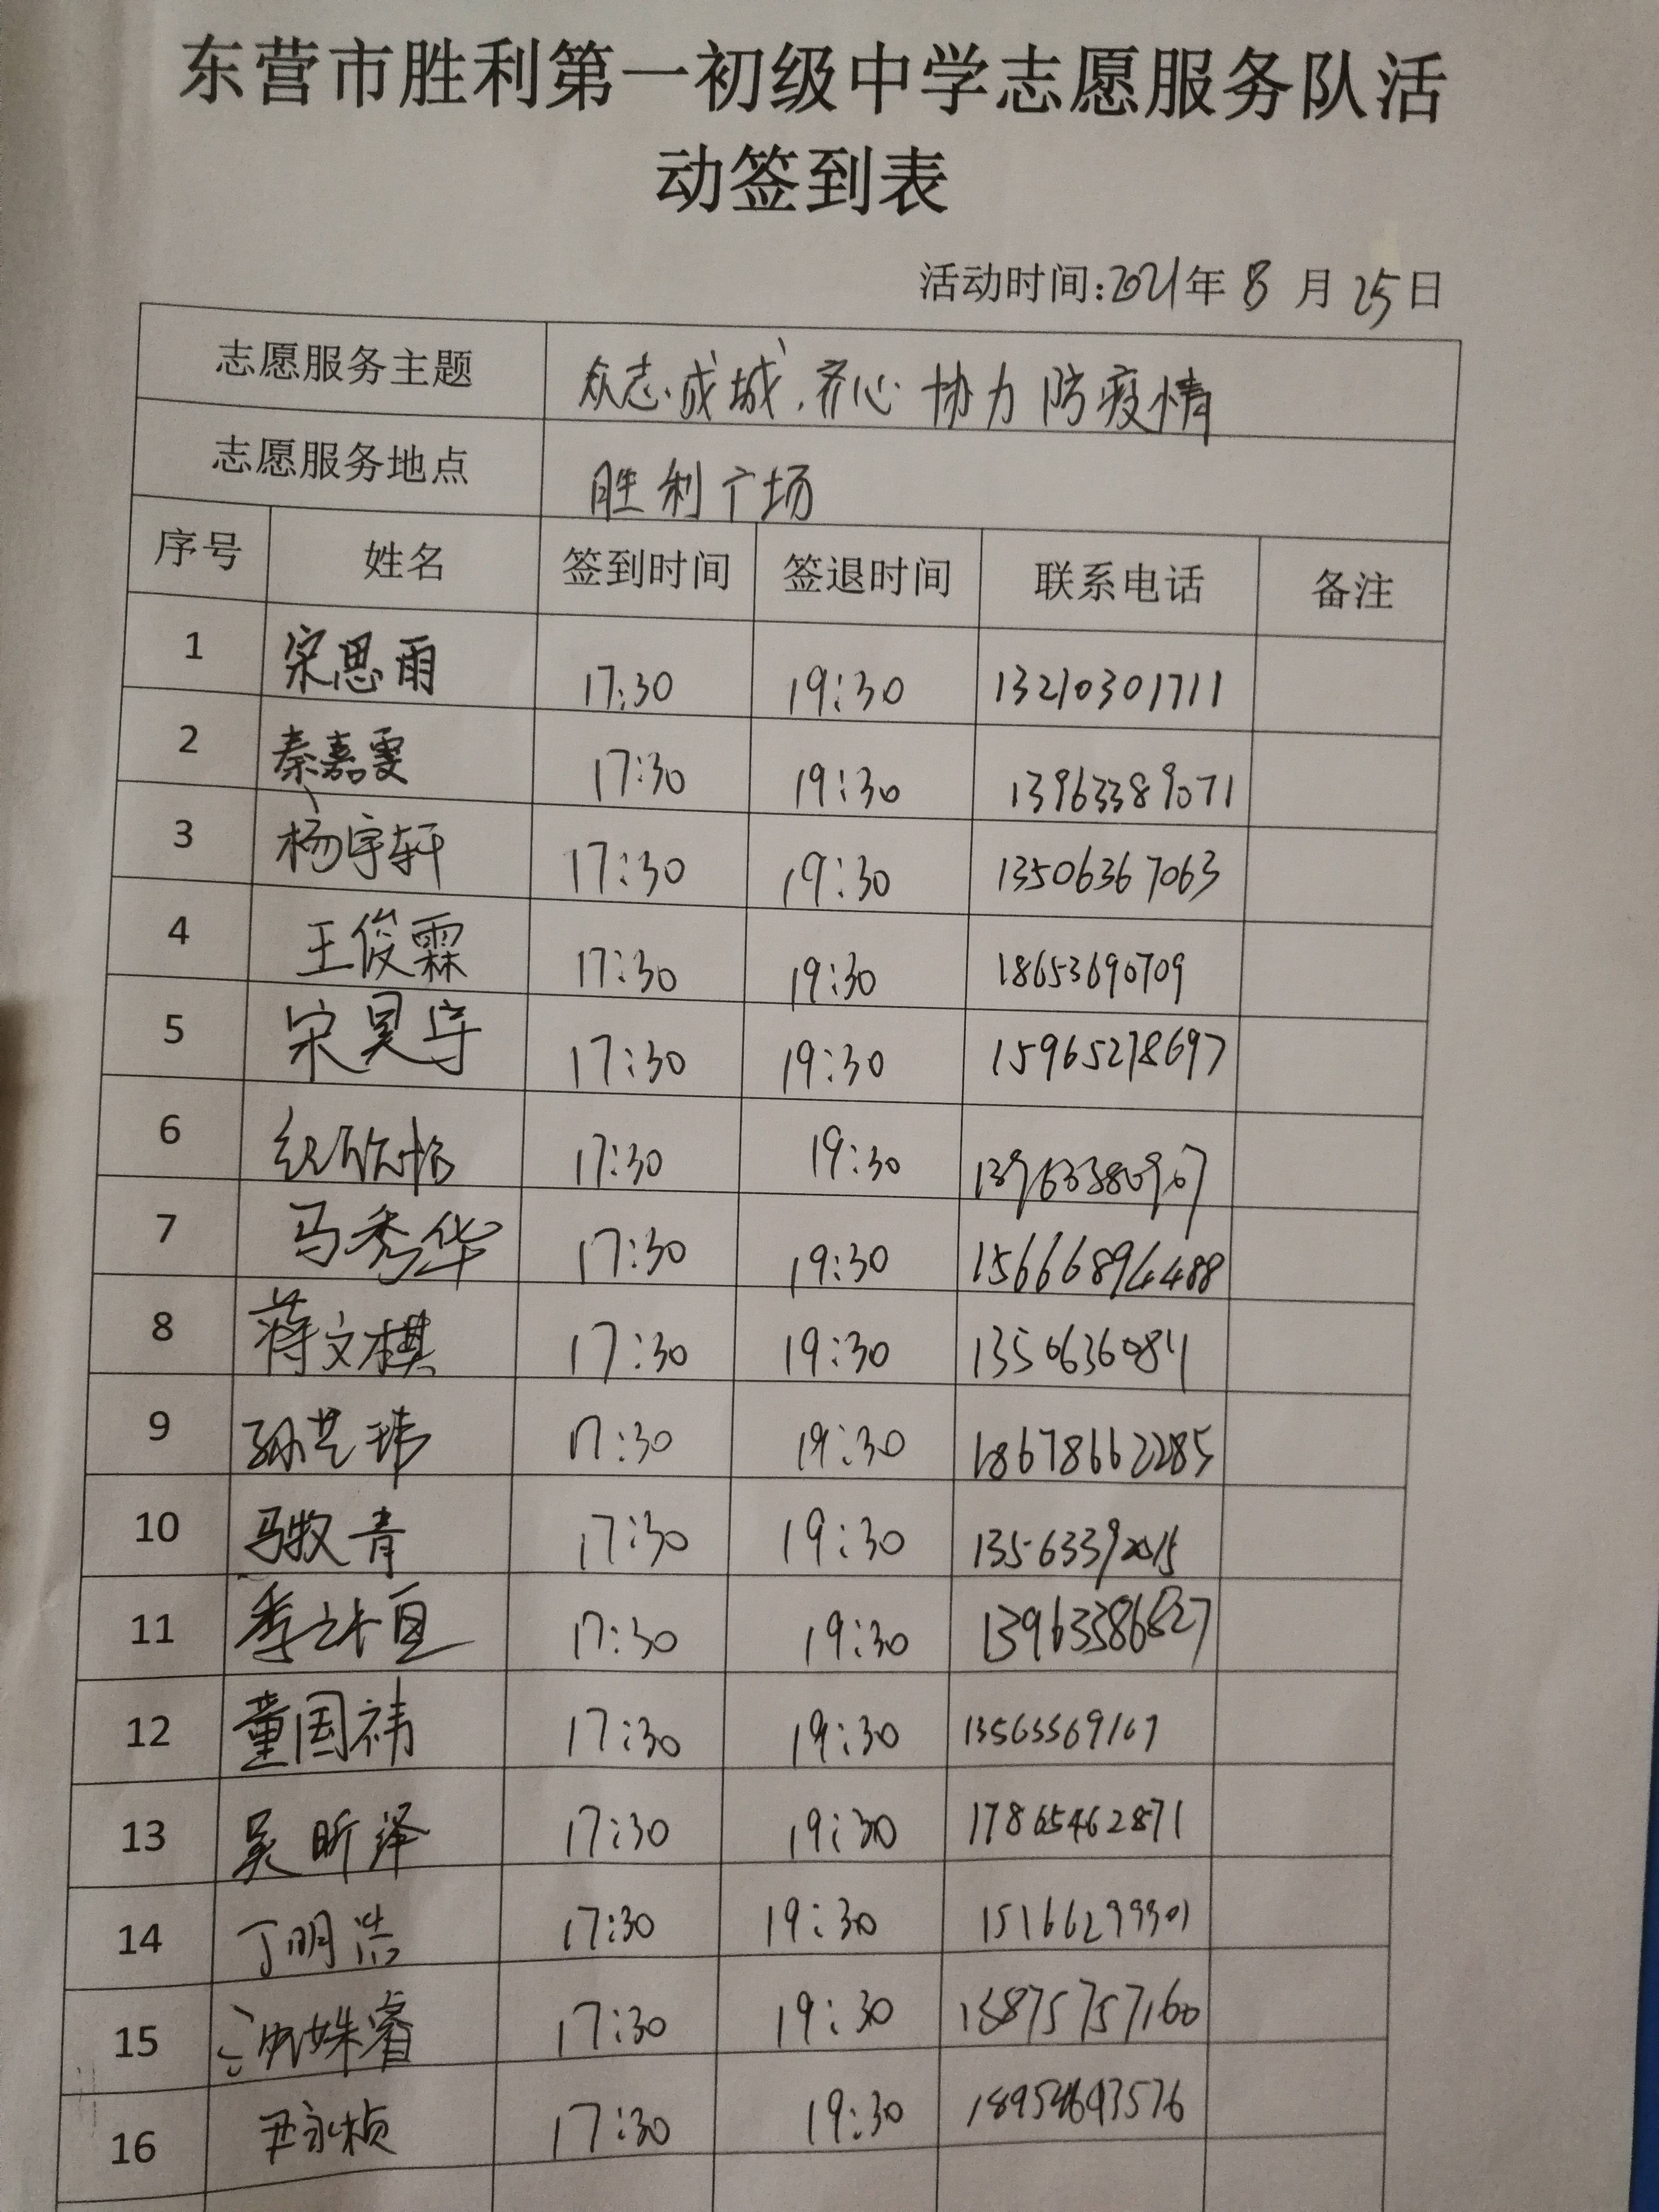 东营市胜利第一初级中学志愿服务队活
动签到表
活动时间:2021年8月25日
志愿服务主题 众志成城,齐心协力防疫情
志愿服务地点 胜利广场
序号 姓名 签到时间 签退时间 联系电话 备注
1 宋思雨 17:30 19:30 13210301711
2 秦嘉雯 17:30 19:30 13963389071
3 杨宇轩 17:30 19:30 13506367063
4 王俊霖 17:30 19:30 18653690709
5 宋昊宇 17:30 19:30 15965278697
6 17:30 19:30 13963380907
7 马秀华 17:30 19:30 15666894488
8 蒋文棋 17:30 19:30 1350636084
9 孙艺玮 17:30 19:30 18678662285
10 马牧青 17:30 19:30 13563392015
11 17:30 19:30 13963386827
12 童国祎 17:30 19:30 13563569107
13 吴昕泽 17:30 19:30 17865462871
14 丁明浩 17:30 19:30 15166299301
15 17:30 19:30 13875757160
16 尹永桢 17:30 19:30 18954693576